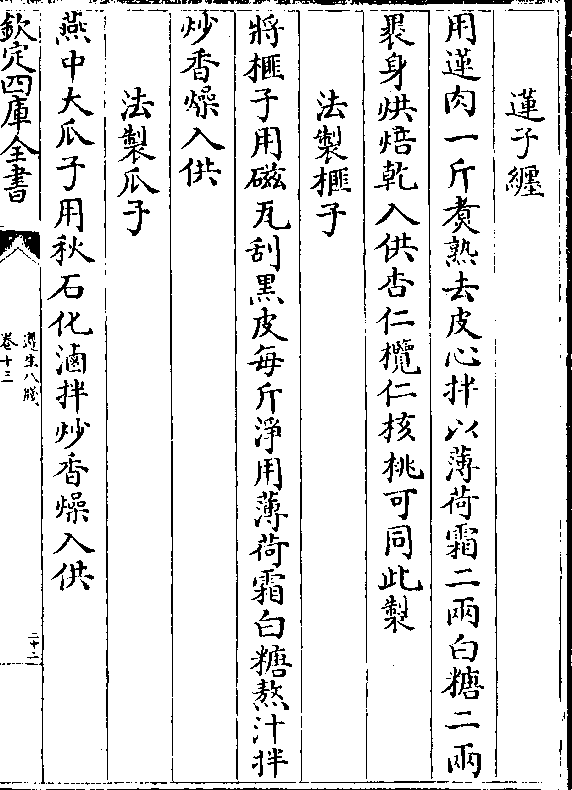 蓮子纏
用蓮肉一斤煑熟去皮心拌以薄荷霜二兩白糖二兩
褁身烘焙乾入供杏仁欖仁核桃可同此製
法製榧子
將榧子用磁瓦刮黑皮每斤淨用薄荷霜白糖熬汁拌
炒香燥入供
法製瓜子
燕中大瓜子用秋石化滷拌炒香燥入供
欽定四庫全書
遵生八牋
卷十三
二十二